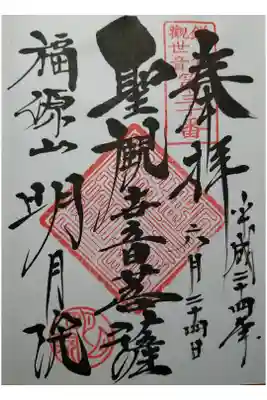 奉拝
平成二十四年
六月二十四日
聖観世音菩薩
福源山
明月院